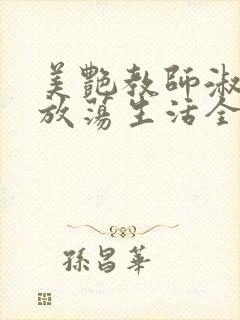 美艷教師淑
放蕩生活全
孫昌華